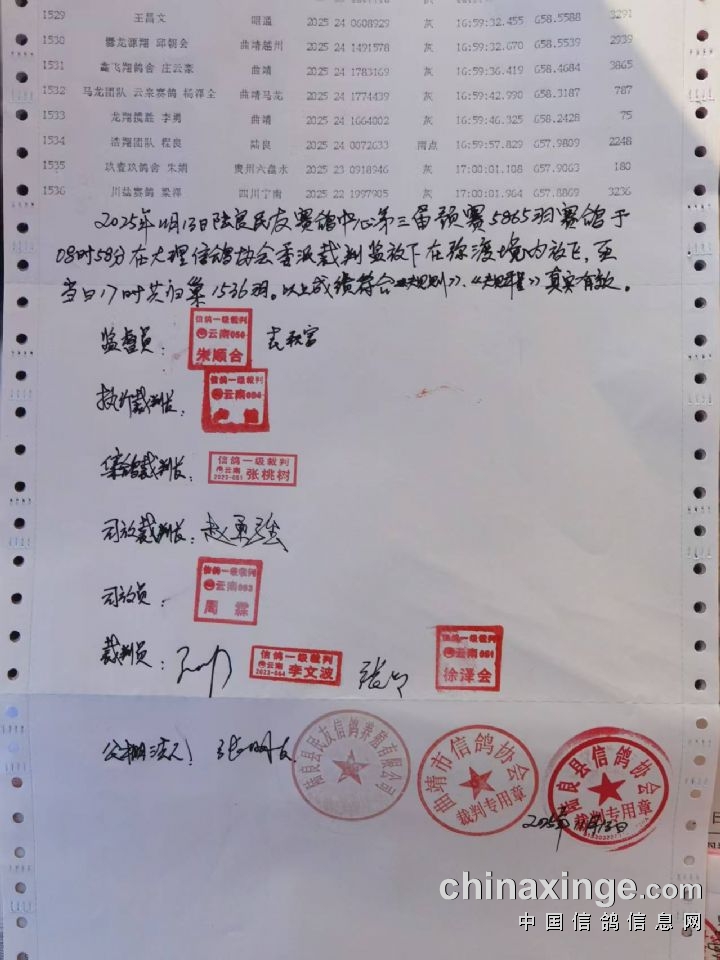 1529 王昌文 昭通 2025 24 0608929 灰 16:59:32.455 658.5588 3291
1530 爨龙源翔 邱朝会 曲靖越州 2025 24 1491578 灰 16:59:32.670 658.5539 2939
1531 鑫飞翔鸽舍 庄云豪 曲靖 2025 24 1783169 灰 16:59:36.419 658.4684 3865
1532 马龙团队 云泉赛鸽 杨泽全 曲靖马龙 2025 24 1774439 灰 16:59:42.990 658.3187 787
1533 龙翔揽胜 李勇 曲靖 2025 24 1664002 灰 16:59:46.325 658.2428 75
1534 浩翔团队 程良 陆良 2025 24 0072633 雨点 16:59:57.829 657.9809 2248
1535 玖壹玖鸽舍 朱娟 贵州六盘水 2025 23 0918946 灰 17:00:01.108 657.9063 180
1536 川盐赛鸽 梁泽 四川宁南 2025 22 1997905 灰 17:00:01.964 657.8869 3236
2025年11月13日陆良民友赛鸽中心第三届预赛5865羽赛鸽于
08时58分在大理信鸽协会委派裁判监放下在弥渡境内放飞,至
当日17时共归巢1536羽。以上成绩符合《规则》、《规程》真实有效。
监督员: 信鸽一级裁判 云南050 朱顺合
执行裁判长: 信鸽一级裁判 云南
集鸽裁判长: 信鸽一级裁判 云南 2023-051 张桃树
司放裁判长: 赵勇强
司放员: 信鸽一级裁判 云南053 周霖
裁判员: 信鸽一级裁判 云南 2023-054 李文波 信鸽一级裁判 云南 051 徐泽会
公棚法人: 张明友
陆良县民友信鸽养殖有限公司
曲靖市信鸽协会 裁判专用章
陆良县信鸽协会 裁判专用章
chinaxinge.com
中国信鸽信息网